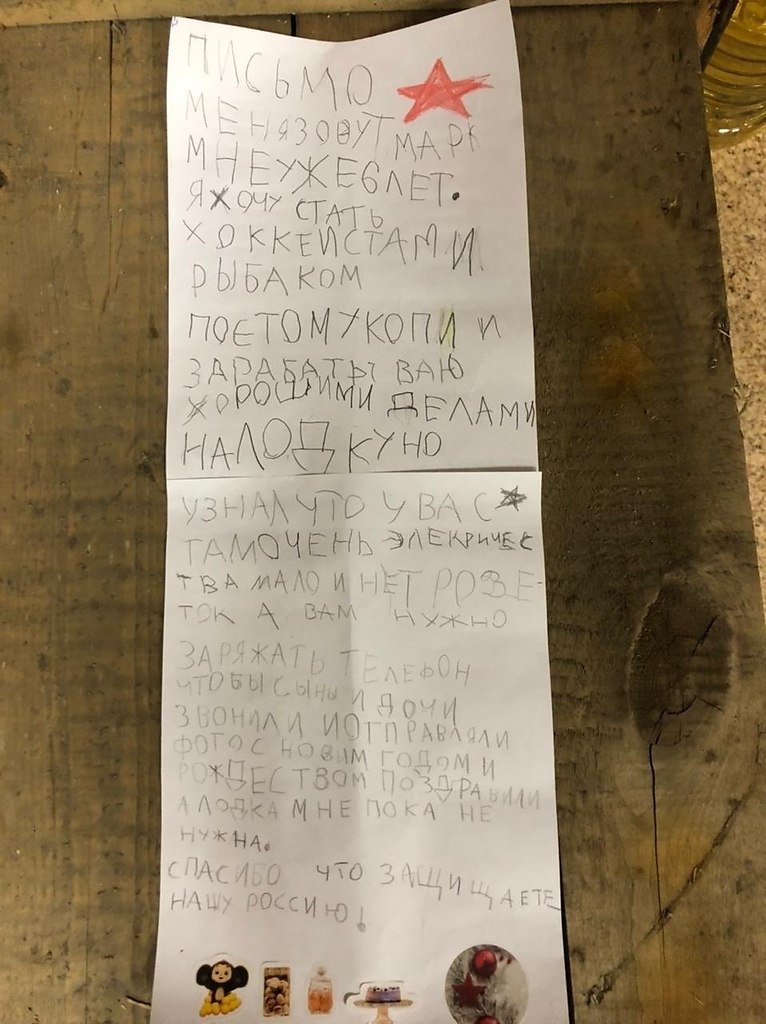 ПИСЬМО
МЕНЯ ЗОВУТ МАРК
МНЕ УЖЕ 6 ЛЕТ.
Я ХОЧУ СТАТЬ
ХОККЕИСТАМ И
РЫБАКОМ
ПОЕТОМУ КОПИ И
ЗАРАБАТЫВАЮ
ХОРОШИМИ ДЕЛАМИ
НА ЛОДКУ НО
УЗНАЛ ЧТО У ВАС
ТАМ ОЧЕНЬ ЭЛЕКРИЧЕС
ТВА МАЛО И НЕТ РОЗЕ-
ТОК А ВАМ НУЖНО
ЗАРЯЖАТЬ ТЕЛЕФОН
ЧТОБЫ СЫНЫ И ДОЧИ
ЗВОНИЛИ И ОТПРАВЛЯЛИ
ФОТО С НОВЫМ ГОДОМ И
РОЖДЕСТВОМ ПОЗДРАВИЛИ
А ЛОДКА МНЕ ПОКА НЕ
НУЖНА.
СПАСИБО ЧТО ЗАЩИЩАЕТЕ
НАШУ РОССИЮ!